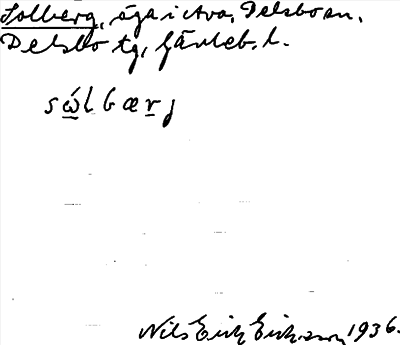 Solberg, äga i Ava, Delsbo sn,
Delsbo tg, Gävleb. l.
sώlbærj
Nils Erik Eriksson 1936.